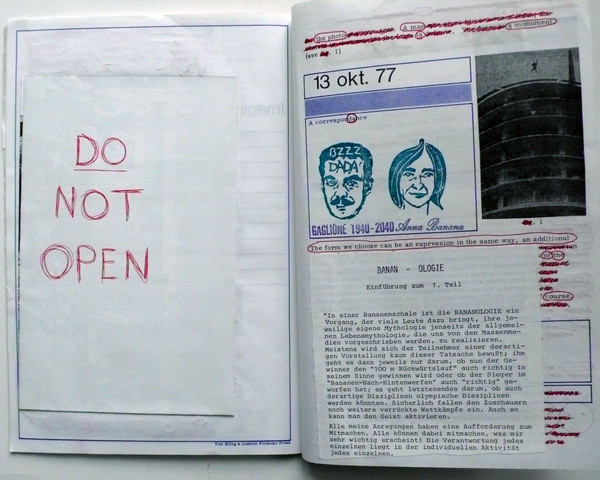 DO
NOT
OPEN
the photo
A man
is
a monument
(see 1)
13 okt. 77
A correspondance
BZZZ
DADA
GAGLIONE 1940-2040 Anna Banana
1
The form we choose can be an expression in the same way, an additional
of the
course
BANAN - OLOGIE
Einführung zum 1. Teil
"In einer Bananenschale ist die BANANOLOGIE ein
Vorgang, der viele Leute dazu bringt, ihre je-
weilige eigene Mythologie jenseits der allgemei-
nen Lebensmythologie, die uns von den Massenme-
dien vorgeschrieben werden, zu realizieren.
Meistens wird sich der Teilnehmer einer derarti-
gen Vorstellung kaum dieser Tatsache bewußt; ihm
geht es dann jeweils nur darum, ob nun der Ge-
winner den "100 m Rückwärtslauf" auch richtig in
seinem Sinne gewinnen wird oder ob der Sieger im
"Bananen-Nach-Hintenwerfen" auch "richtig" ge-
worfen hat; es geht letztenendes darum, ob auch
derartige Disziplinen olympische Disziplinen
werden könnten. Sicherlich fallen den Zuschauern
noch weitere verrückte Wettkämpfe ein. Auch so
kann man den Geist aktivieren.
Alle meine Anregungen haben eine Aufforderung zum
Mitmachen. Alle können dabei mitmachen, was mir
sehr wichtig erscheint! Die Verantwortung jedes
einzelnen liegt in der individuellen Aktivität
jedes einzelnen.